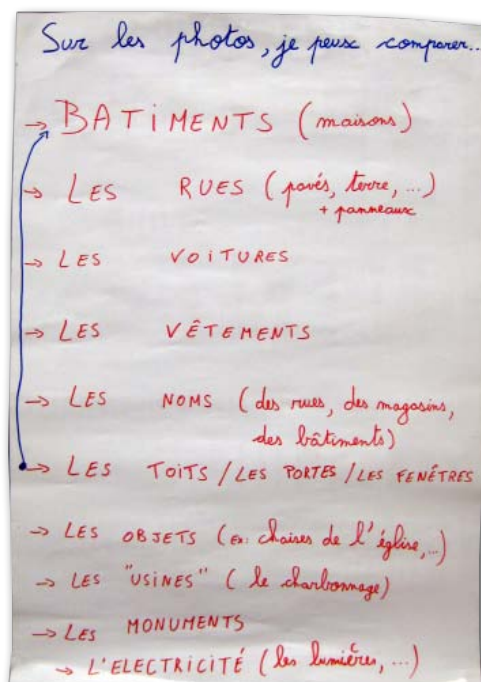 Sur les photos, je peux comparer...
→ BATIMENTS (maisons)
→ LES RUES (pavés, terre, ...)
+ panneaux
→ LES VOITURES
→ LES VÊTEMENTS
→ LES NOMS (des rues, des magasins,
des bâtiments)
→ LES TOITS / LES PORTES / LES FENÊTRES
→ LES OBJETS (ex: chaises de l'église,...)
→ LES "USINES" (le charbonnage)
→ LES MONUMENTS
→ L'ELECTRICITÉ (les lumières, ...)